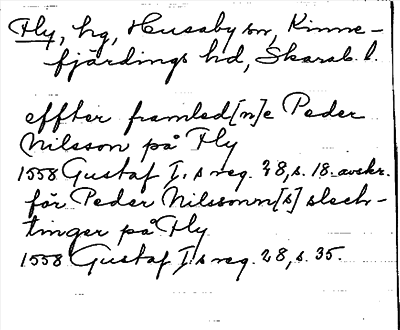 Fly, hg, Husaby sn, Kinne-
fjärdings hd, Skarab. l.
effter framled[n]e Peder
Nilsson på Fly
1558 Gustaf I.s reg. 28, s. 18. avskr.
för Peder Nilssonn[s] slech-
tinger på Fly
1558 Gustaf I.s reg. 28, s. 35.